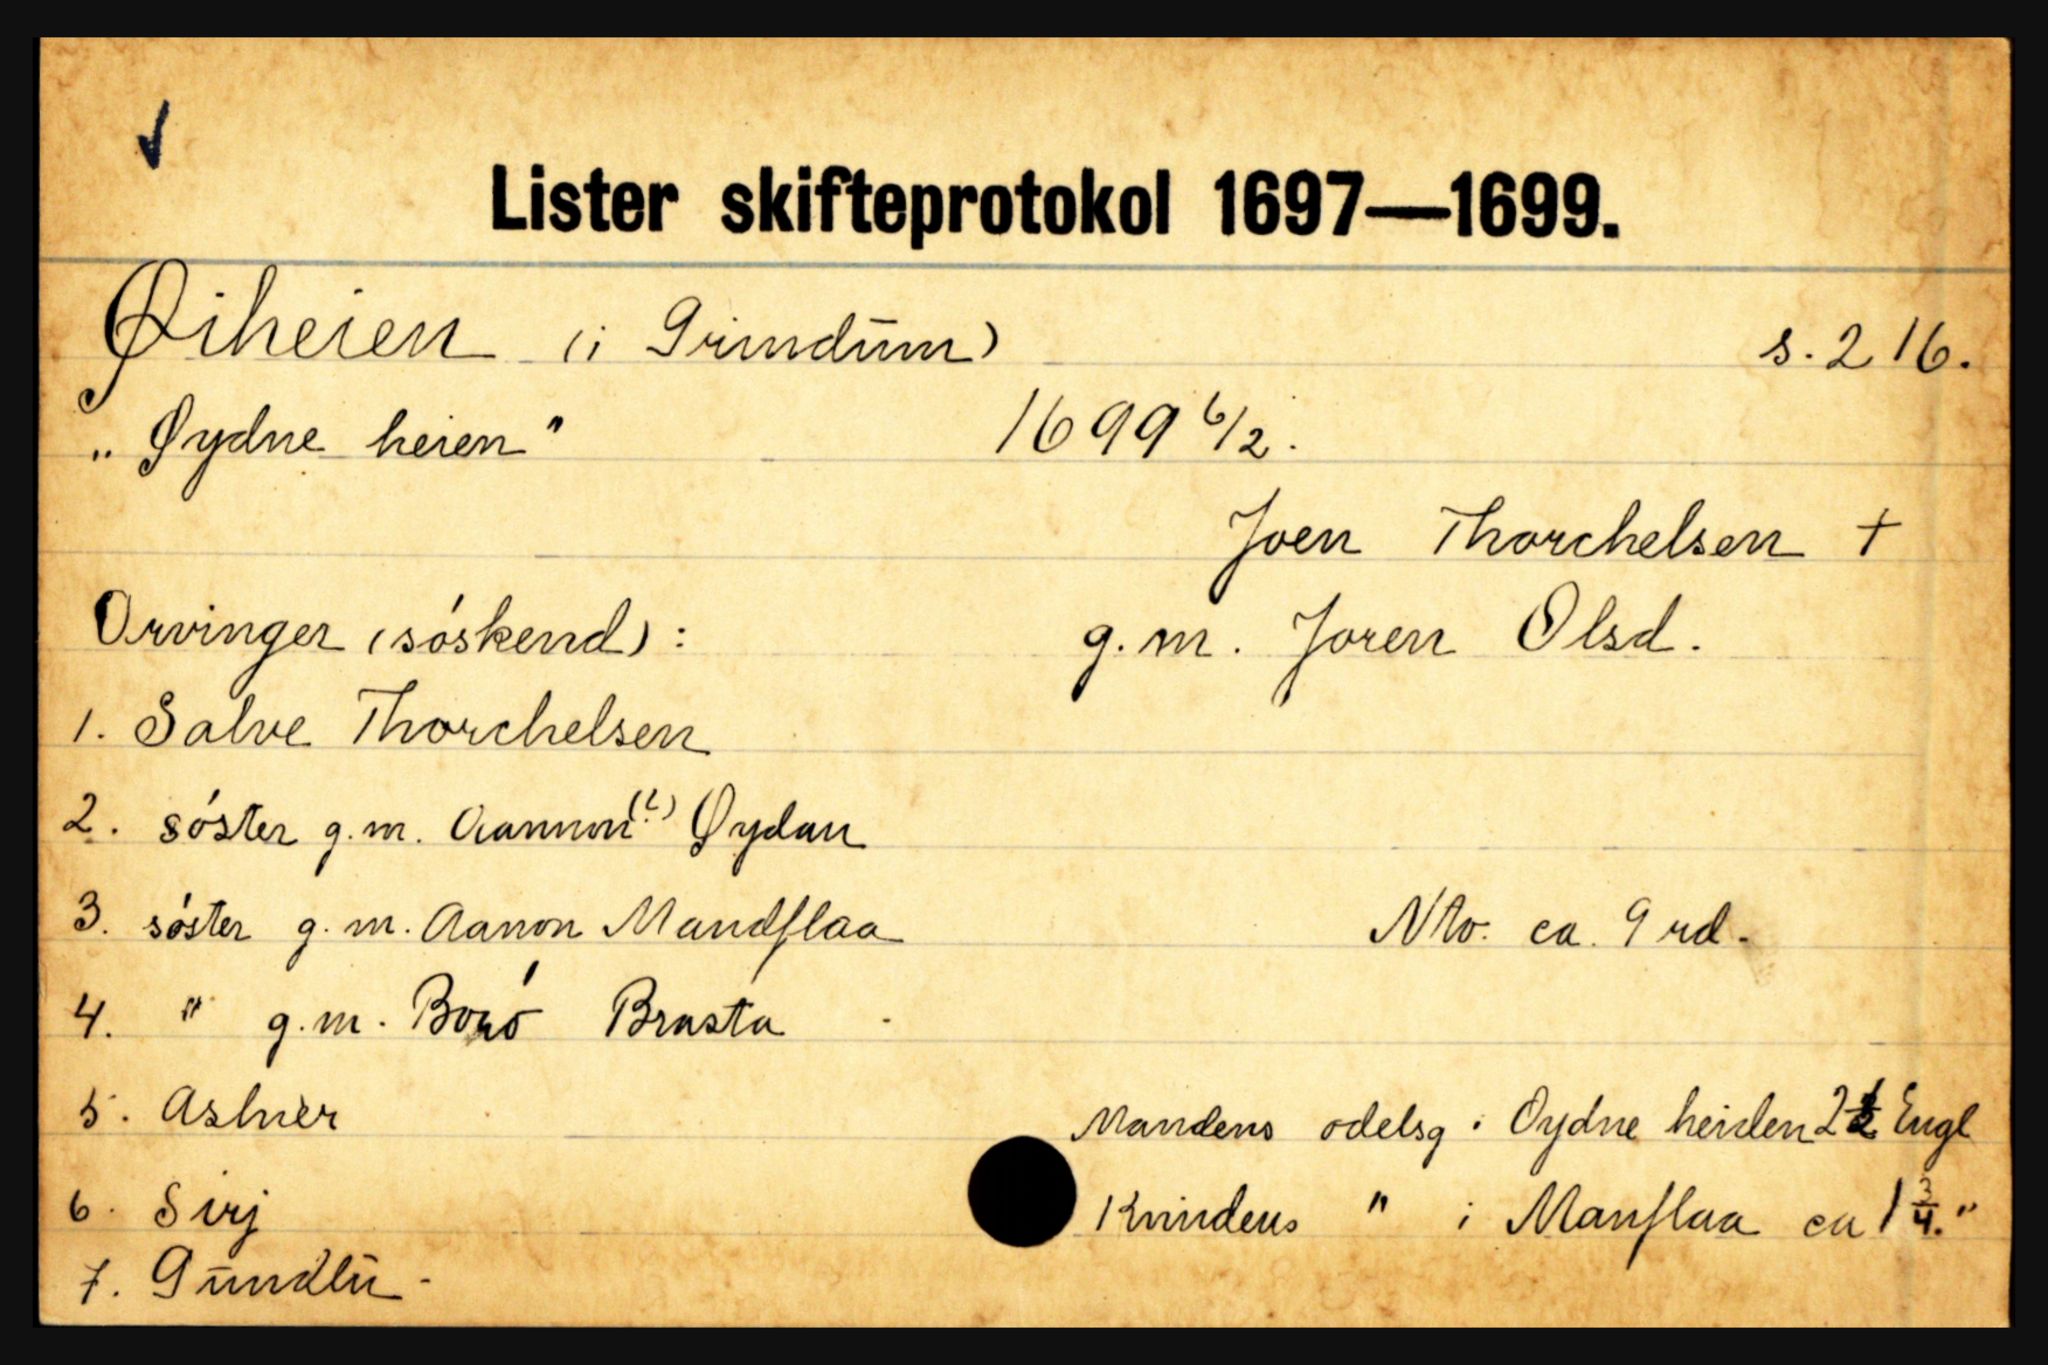 Lister skifteprotokol 1697—1699.
Øiheien (i Grindum) s. 216.
„Øydne heien" 1699 6/2.
Joen Thorchelsen +
Orvinger (söskend): g.m. Joren Olsd.
1. Salve Thorchelsen
2. söster g.m. Aannon(?) Øydan
3. söster g.m. Aanon Mandflaa Nto. ca. 9 rd.
4. " g.m. Boyö Brasta
5. Aslner Mandens odelsg i Oydne heiden 2 1/2 Engl
6. Sirj Kvindens " i Manflaa ca 1 3/4. "
7. Gundlu